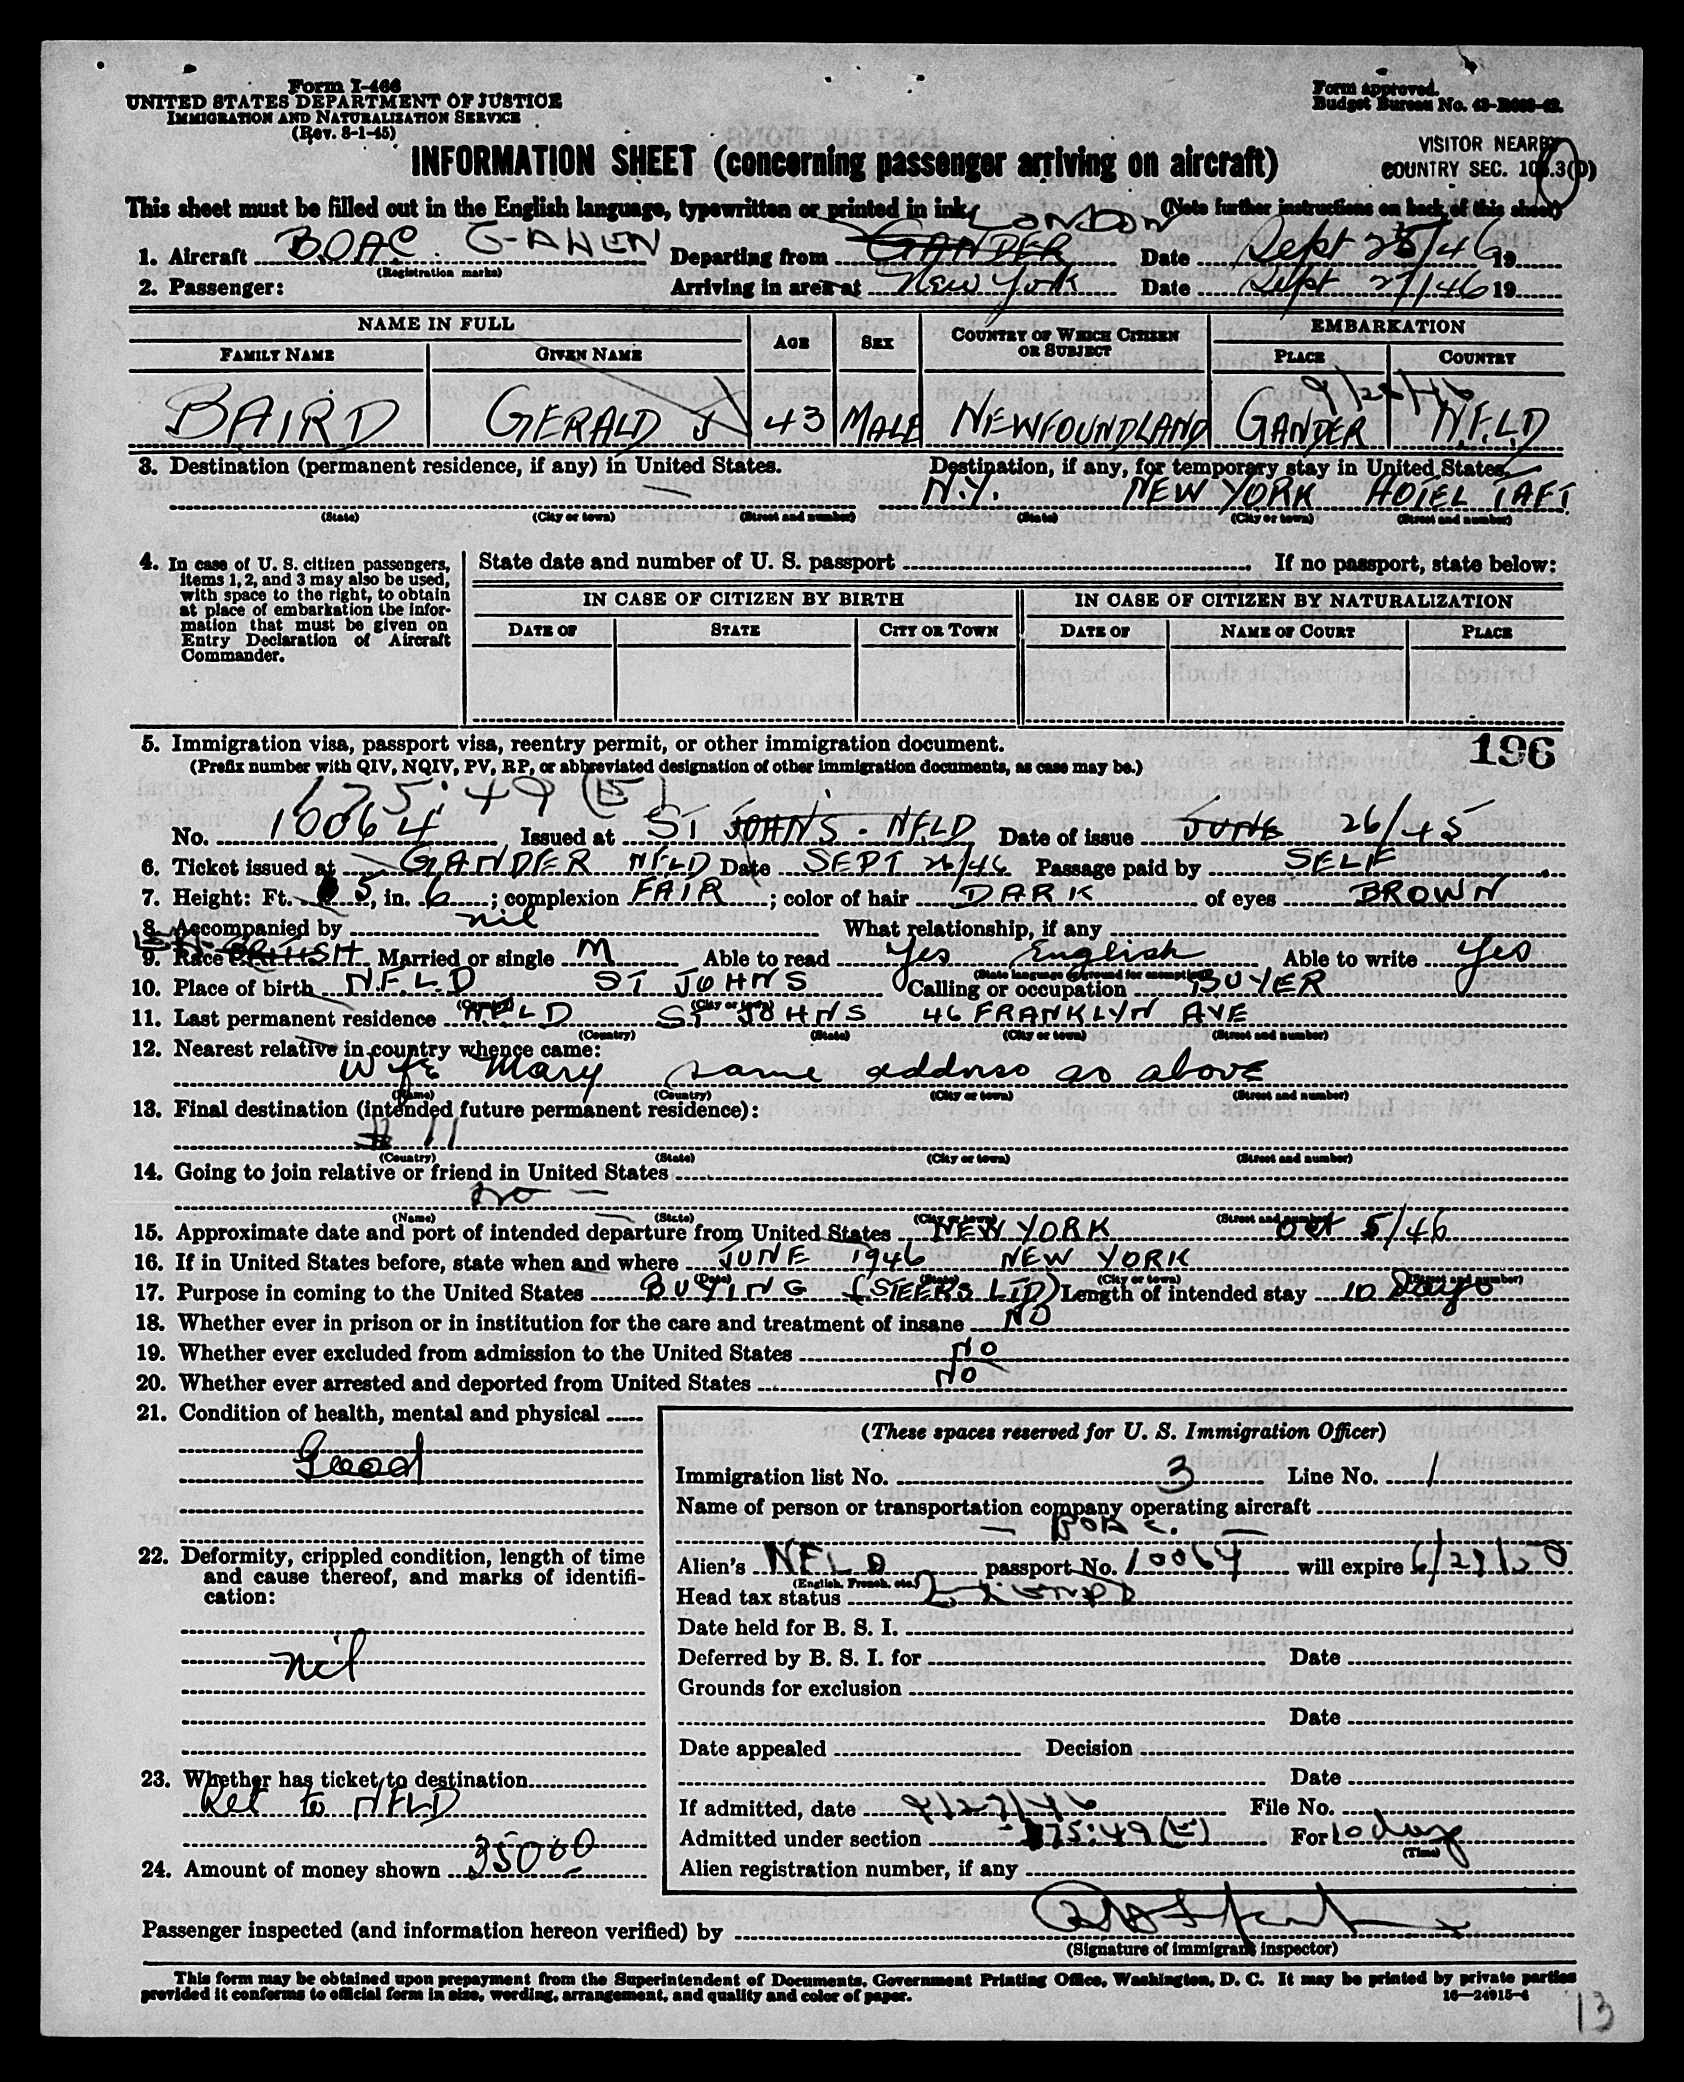 Form I-466
UNITED STATES DEPARTMENT OF JUSTICE
IMMIGRATION AND NATURALIZATION SERVICE
(Rev. 8-1-45)
Form approved.
Budget Bureau No.
VISITOR NEARBY
COUNTRY SEC.
INFORMATION SHEET (concerning passenger arriving on aircraft)
This sheet must be filled out in the English language, typewritten or printed in ink.
(Note further instructions on back of this sheet)
LONDON
1. Aircraft BOAC. G-AHEN Departing from GANDER Date Sept 25/46 19
(Registration marks)
2. Passenger: Arriving in area at New York Date Sept 27/46 19
NAME IN FULL AGE SEX COUNTRY OF WHICH CITIZEN OR SUBJECT EMBARKATION
FAMILY NAME GIVEN NAME PLACE COUNTRY
9/26/46
BAIRD GERALD J 43 MALE NEWFOUNDLAND GANDER N.F.L.D
3. Destination (permanent residence, if any) in United States. Destination, if any, for temporary stay in United States.
— N.Y. NEW YORK HOTEL TAFT
(State) (City or town) (Street and number) (State) (City or town) (Street and number)
4. In case of U. S. citizen passengers, items 1, 2, and 3 may also be used, with space to the right, to obtain at place of embarkation the information that must be given on Entry Declaration of Aircraft Commander.
State date and number of U. S. passport If no passport, state below:
IN CASE OF CITIZEN BY BIRTH IN CASE OF CITIZEN BY NATURALIZATION
DATE OF STATE CITY OR TOWN DATE OF NAME OF COURT PLACE
5. Immigration visa, passport visa, reentry permit, or other immigration document.
196
(Prefix number with QIV, NQIV, PV, RP, or abbreviated designation of other immigration documents, as case may be.)
175:49 (E)
No. 10064 Issued at ST JOHN'S. NFLD Date of issue JUNE 26/45
6. Ticket issued at GANDER NFLD Date SEPT 26/46 Passage paid by SELF
7. Height: Ft. 5, in. 6; complexion FAIR; color of hair DARK of eyes BROWN
8. Accompanied by nil What relationship, if any
9. Race BRITISH Married or single M Able to read Yes English Able to write Yes
(State language or ground for exemption)
10. Place of birth N.F.L.D ST JOHNS Calling or occupation BUYER
(Country) (City or town)
11. Last permanent residence NFLD ST JOHNS 46 FRANKLYN AVE
(Country) (State) (City or town) (Street and number)
12. Nearest relative in country whence came:
Wife Mary same address as above
(Name) (Country) (City or town) (Street and number)
13. Final destination (intended future permanent residence):
# 11
(Country) (State) (City or town) (Street and number)
14. Going to join relative or friend in United States
no —
(Name) (State) (City or town) (Street and number)
15. Approximate date and port of intended departure from United States NEW YORK Oct 5/46
16. If in United States before, state when and where JUNE 1946 NEW YORK
(Date) (State) (City or town) (Street and number)
17. Purpose in coming to the United States BUYING (STEERS LTD) Length of intended stay 10 Days
18. Whether ever in prison or in institution for the care and treatment of insane NO
19. Whether ever excluded from admission to the United States NO
20. Whether ever arrested and deported from United States NO
21. Condition of health, mental and physical
Good
22. Deformity, crippled condition, length of time and cause thereof, and marks of identification:
nil
23. Whether has ticket to destination
Ret to NFLD
24. Amount of money shown 350 00
(These spaces reserved for U. S. Immigration Officer)
Immigration list No. 3 Line No. 1
Name of person or transportation company operating aircraft
— BOAC. —
Alien's NFLD passport No. 10064 will expire
(English, French, etc.)
Head tax status Exempt
Date held for B. S. I.
Deferred by B. S. I. for Date
Grounds for exclusion
Date
Date appealed Decision
Date
If admitted, date 9/27/46 File No.
Admitted under section 175:49(E) For 10 days
(Time)
Alien registration number, if any
Passenger inspected (and information hereon verified) by
(Signature of immigrant inspector)
This form may be obtained upon prepayment from the Superintendent of Documents, Government Printing Office, Washington, D. C. It may be printed by private parties
provided it conforms to official form in size, wording, arrangement, and quality and color of paper.
16—24915-4
13